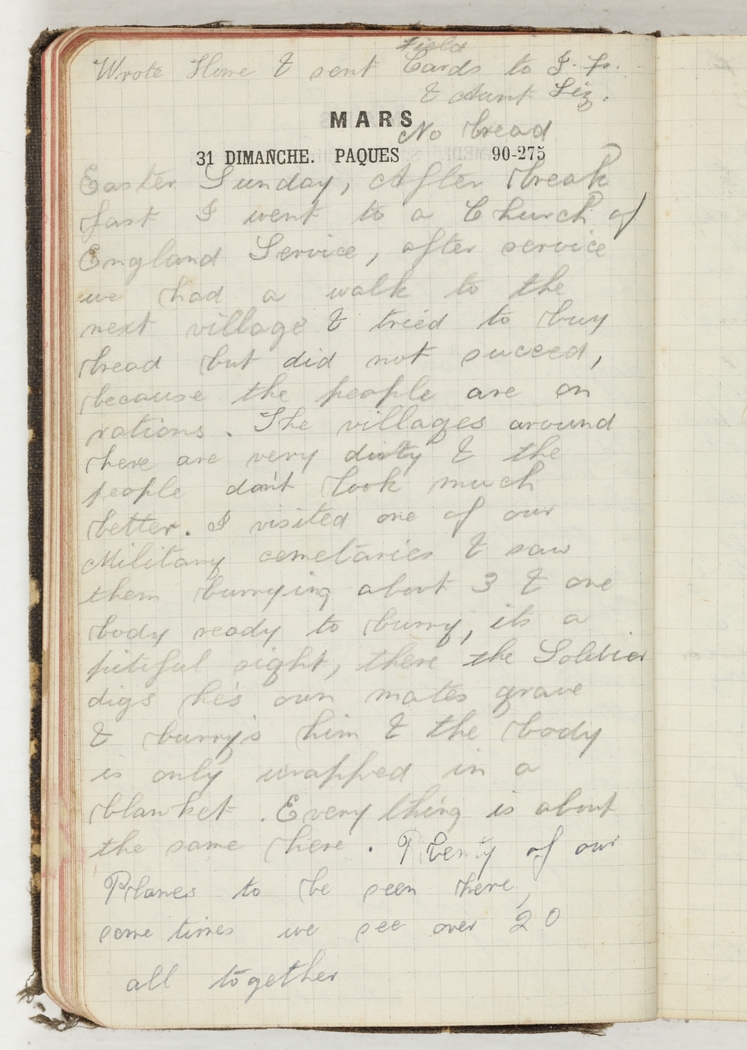 Field
Wrote Home & sent Cards to J. P.
& Aunt Liz.
MARS
No bread
31 DIMANCHE. PAQUES 90-275
Easter Sunday, After break
fast I went to a Church of
England Service, after service
we had a walk to the
next village & tried to buy
bread but did not succeed,
because the people are on
rations. The villages around
here are very dirty & the
people don't look much
better. I visited one of our
Military cemetaries & saw
them burrying about 3 & one
body ready to burry, its a
pitiful sight, there the Soldier
digs he's own mates grave
& burry's him & the body
is only wrapped in a
blanket. Every thing is about
the same here. Plenty of our
Planes to be seen here,
some times we see over 20
all together